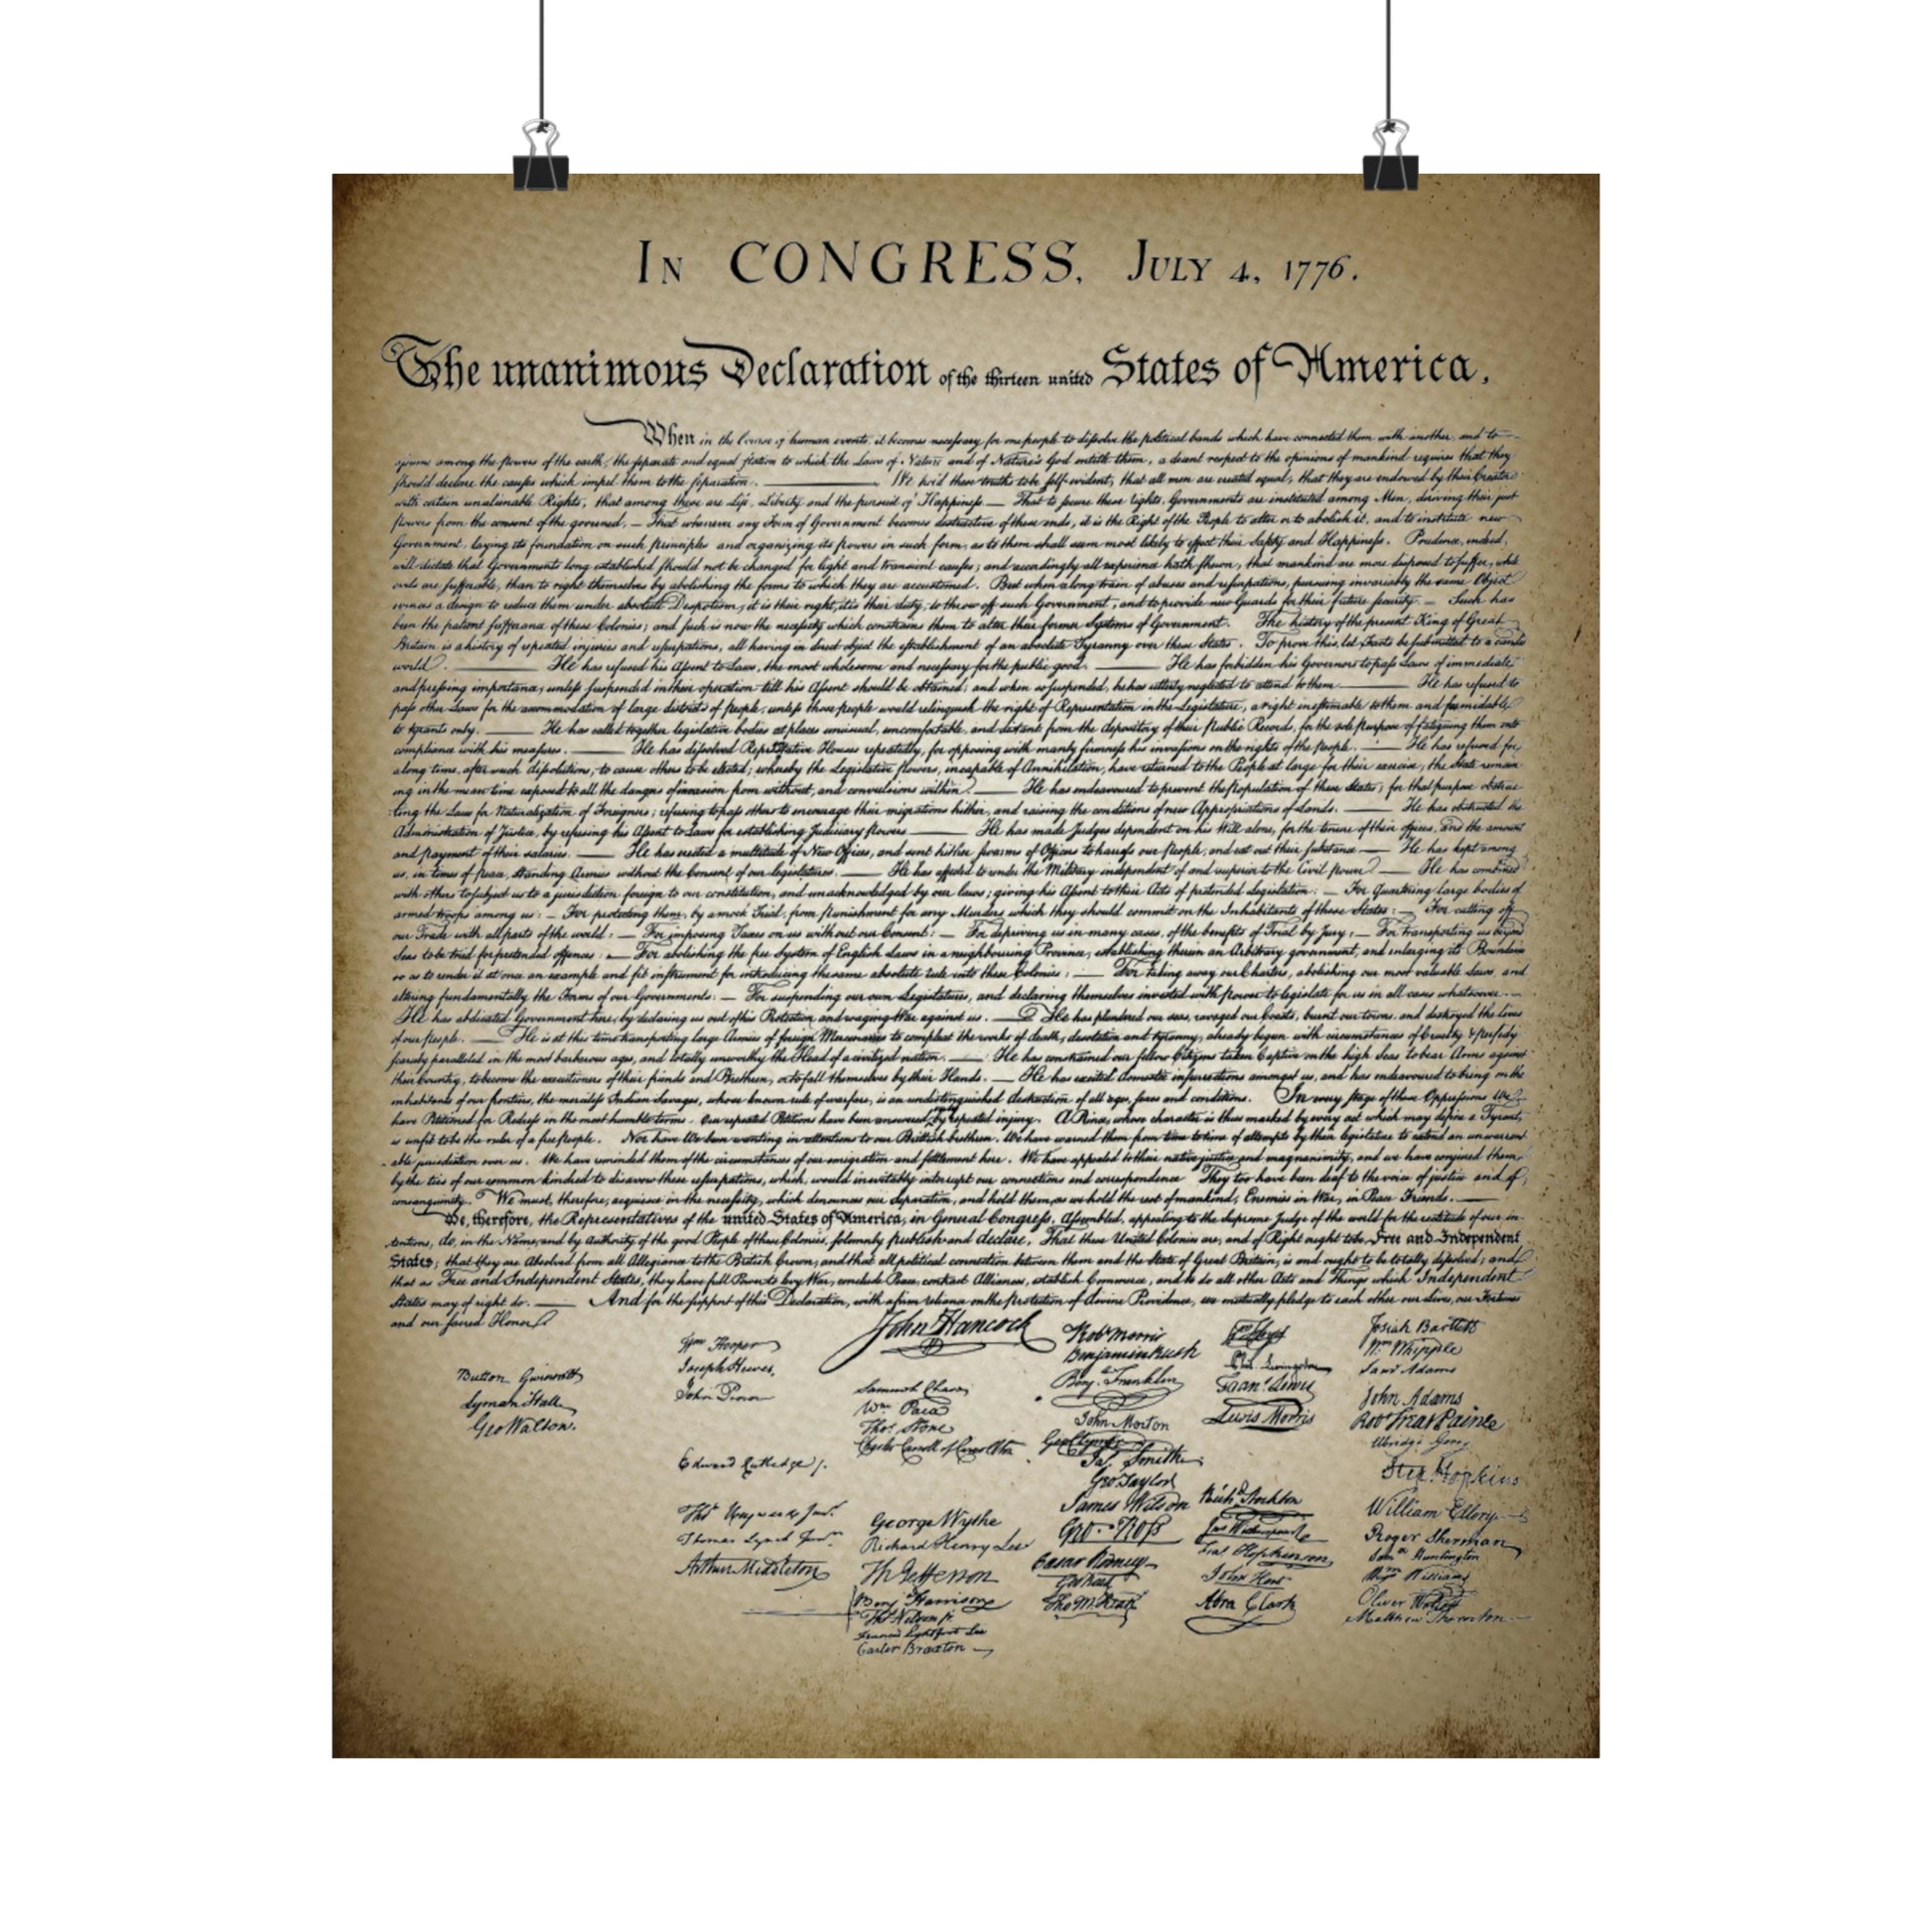 In CONGRESS, July 4, 1776.
The unanimous Declaration of the thirteen united States of America,
When in the Course of human events, it becomes necessary for one people to dissolve the political bands which have connected them with another, and to
assume among the powers of the earth, the separate and equal station to which the Laws of Nature and of Nature's God entitle them, a decent respect to the opinions of mankind requires that they
should declare the causes which impel them to the separation. We hold these truths to be self-evident, that all men are created equal, that they are endowed by their Creator
with certain unalienable Rights, that among these are Life, Liberty and the pursuit of Happiness. — That to secure these rights, Governments are instituted among Men, deriving their just
powers from the consent of the governed, — That whenever any Form of Government becomes destructive of these ends, it is the Right of the People to alter or to abolish it, and to institute new
Government, laying its foundation on such principles and organizing its powers in such form, as to them shall seem most likely to effect their Safety and Happiness. Prudence, indeed,
will dictate that Governments long established should not be changed for light and transient causes; and accordingly all experience hath shewn, that mankind are more disposed to suffer, while
evils are sufferable, than to right themselves by abolishing the forms to which they are accustomed. But when a long train of abuses and usurpations, pursuing invariably the same Object
evinces a design to reduce them under absolute Despotism, it is their right, it is their duty, to throw off such Government, and to provide new Guards for their future security. — Such has
been the patient sufferance of these Colonies; and such is now the necessity which constrains them to alter their former Systems of Government. The history of the present King of Great
Britain is a history of repeated injuries and usurpations, all having in direct object the establishment of an absolute Tyranny over these States. To prove this, let Facts be submitted to a candid
world. He has refused his Assent to Laws, the most wholesome and necessary for the public good. He has forbidden his Governors to pass Laws of immediate
and pressing importance, unless suspended in their operation till his Assent should be obtained; and when so suspended, he has utterly neglected to attend to them. He has refused to
pass other Laws for the accommodation of large districts of people, unless those people would relinquish the right of Representation in the Legislature, a right inestimable to them and formidable
to tyrants only. He has called together legislative bodies at places unusual, uncomfortable, and distant from the depository of their Public Records, for the sole purpose of fatiguing them into
compliance with his measures. He has dissolved Houses repeatedly, for opposing with manly firmness his invasions on the rights of the people. He has refused for
a long time, after such dissolutions, to cause others to be elected; whereby the Legislative powers, incapable of Annihilation, have returned to the People at large for their exercise; the State remain
ing in the mean time exposed to all the dangers of invasion from without, and convulsions within. He has endeavoured to prevent the Population of these States; for that purpose obstruc
ting the Laws for Naturalization of Foreigners; refusing to pass others to encourage their migrations hither, and raising the conditions of new Appropriations of Lands. He has obstructed the
Administration of Justice, by refusing his Assent to Laws for establishing Judiciary powers. He has made Judges dependent on his Will alone, for the tenure of their offices, and the amount
and payment of their salaries. He has erected a multitude of New Offices, and sent hither swarms of Officers to harrass our people, and eat out their substance. He has kept among
us, in times of peace, Standing Armies without the Consent of our legislatures. He has affected to render the Military independent of and superior to the Civil power. He has combined
with others to subject us to a jurisdiction foreign to our constitution, and unacknowledged by our laws; giving his Assent to their Acts of pretended Legislation: — For Quartering large bodies of
armed troops among us: — For protecting them, by a mock Trial, from punishment for any Murders which they should commit on the Inhabitants of these States: — For cutting off
our Trade with all parts of the world: — For imposing Taxes on us without our Consent: — For depriving us in many cases, of the benefits of Trial by Jury: — For transporting us beyond
Seas to be tried for pretended offences: — For abolishing the free System of English Laws in a neighbouring Province, establishing therein an Arbitrary government, and enlarging its Boundaries
so as to render it at once an example and fit instrument for introducing the same absolute rule into these Colonies: — For taking away our Charters, abolishing our most valuable Laws, and
altering fundamentally the Forms of our Governments: — For suspending our own Legislatures, and declaring themselves invested with power to legislate for us in all cases whatsoever. —
He has abdicated Government here, by declaring us out of his Protection and waging War against us. He has plundered our seas, ravaged our Coasts, burnt our towns, and destroyed the lives
of our people. He is at this time transporting large Armies of foreign Mercenaries to compleat the works of death, desolation and tyranny, already begun with circumstances of Cruelty & perfidy
scarcely paralleled in the most barbarous ages, and totally unworthy the Head of a civilized nation. He has constrained our fellow Citizens taken Captive on the high Seas to bear Arms against
their Country, to become the executioners of their friends and Brethren, or to fall themselves by their Hands. He has excited domestic insurrections amongst us, and has endeavoured to bring on the
inhabitants of our frontiers, the merciless Indian Savages, whose known rule of warfare, is an undistinguished destruction of all ages, sexes and conditions. In every stage of these Oppressions We
have Petitioned for Redress in the most humble terms: Our repeated Petitions have been answered by repeated injury. A Prince, whose character is thus marked by every act which may define a Tyrant,
is unfit to be the ruler of a free people. Nor have We been wanting in attentions to our Brittish brethren. We have warned them from time to time of attempts by their legislature to extend an unwarrant
able jurisdiction over us. We have reminded them of the circumstances of our emigration and settlement here. We have appealed to their native justice and magnanimity, and we have conjured them
by the ties of our common kindred to disavow these usurpations, which, would inevitably interrupt our connections and correspondence They too have been deaf to the voice of justice and of
consanguinity. We must, therefore, acquiesce in the necessity, which denounces our Separation, and hold them, as we hold the rest of mankind, Enemies in War, in Peace Friends.
We, therefore, the Representatives of the united States of America, in General Congress, Assembled, appealing to the Supreme Judge of the world for the rectitude of our in
tentions, do, in the Name, and by Authority of the good People of these Colonies, solemnly publish and declare, That these United Colonies are, and of Right ought to be Free and Independent
States; that they are Absolved from all Allegiance to the British Crown, and that all political connection between them and the State of Great Britain, is and ought to be totally dissolved; and
that as Free and Independent States, they have full Power to levy War, conclude Peace, contract Alliances, establish Commerce, and to do all other Acts and Things which Independent
States may of right do. And for the support of this Declaration, with a firm reliance on the protection of divine Providence, we mutually pledge to each other our Lives, our Fortunes
and our sacred Honor.
Button Gwinnett
Lyman Hall
Geo Walton.
Wm Hooper
Joseph Hewes,
John Penn
Edward Rutledge /.
Thos Heyward Junr.
Thomas Lynch Junr.
Arthur Middleton
John Hancock
Samuel Chase
Wm Paca
Thos Stone
Charles Carroll of Carrollton
George Wythe
Richard Henry Lee
Th Jefferson
Benj Harrison
Thos Nelson jr.
Francis Lightfoot Lee
Carter Braxton
Robt Morris
Benjamin Rush
Benj. Franklin
John Morton
Geo Clymer
Jas. Smith
Geo Taylor
James Wilson
Geo. Ross
Caesar Rodney
Geo Read
Tho M:Kean
Phil. Livingston
Frans. Lewis
Lewis Morris
Richd. Stockton
Jno Witherspoon
Fras. Hopkinson
John Hart
Abra Clark
Josiah Bartlett
Wm Whipple
Saml Adams
John Adams
Robt Treat Paine
Elbridge Gerry
Step Hopkins
William Ellery
Roger Sherman
Saml Huntington
Wm Williams
Oliver Wolcott
Matthew Thornton